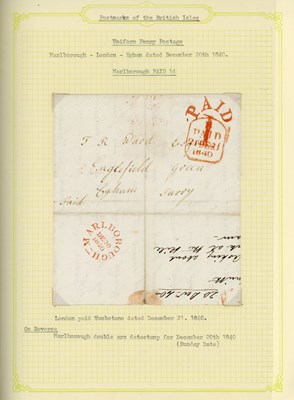 Postmarks of the British Isles
Uniform Penny Postage
Marlborough - London - Egham dated December 20th 1840.
Marlborough PAID 1d
PAID
PAID
1840
T R Ward Esq
Englefield Green
Egham Surry
Paid
MARLBOROUGH
DE 20
1840
London paid Tombstone dated December 21. 1840.
On Reverse
Marlborough double arc datestamp for December 20th 1840
(Sunday Date)